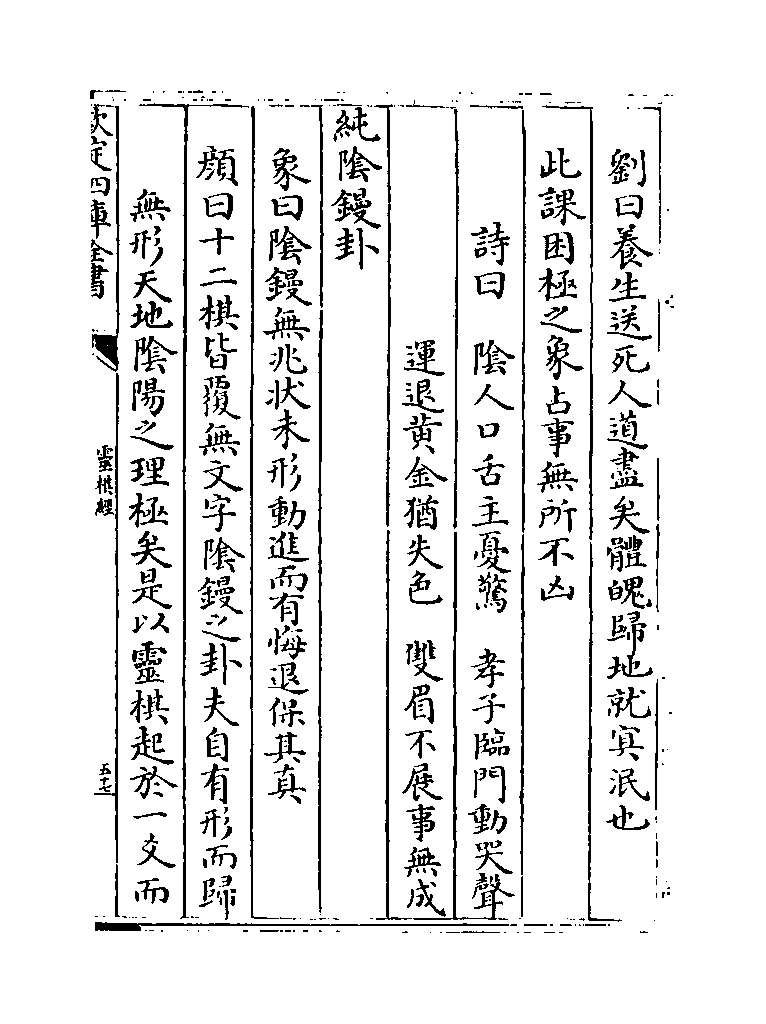 劉曰養生送死人道盡矣體魄歸地就冥泯也
此課困極之象占事無所不凶
詩曰　陰人口舌主憂驚　孝子臨門動哭聲
運退黄金猶失色　雙眉不展事無成
純陰鏝卦
象曰陰鏝無兆状未形動進而有悔退保其真
顔曰十二棋皆覆無文字陰鏝之卦夫自有形而歸
無形天地陰陽之理極矣是以靈棋起於一爻而
欽定四庫全書
靈棋經
五十七